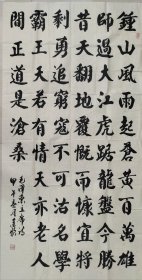 鍾山風雨起蒼黃百萬雄
師過大江虎踞龍盤今勝
昔天翻地覆慨而慷宜將
剩勇追窮寇不可沽名學
霸王天若有情天亦老人
間正道是滄桑
毛澤東主席詩
甲午春月